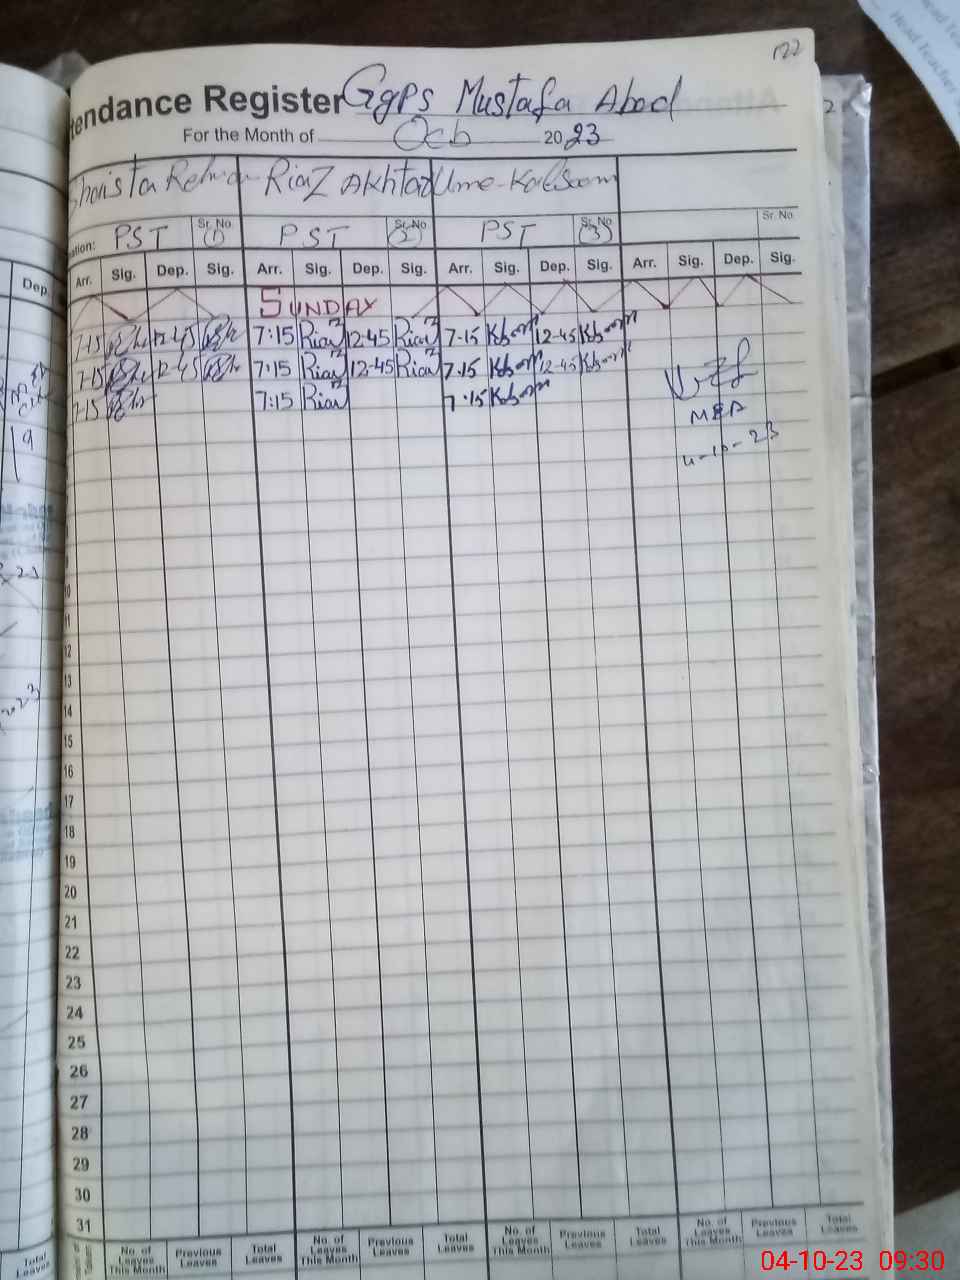 122
tendance Register GgPS Mustafa Abad
For the Month of Ocb 2023
Shaista Rehman Riaz Akhtar Ume-Kalsoom
ation: PST Sr. No. (1) PST Sr. No. (2) PST Sr. No. (3) Sr. No.
Dep. Arr. Sig. Dep. Sig. Arr. Sig. Dep. Sig. Arr. Sig. Dep. Sig. Arr. Sig. Dep. Sig.
SUNDAY
7-15 12-45 7:15 Riaz 12-45 Riaz 7-15 12-45
7-15 12-45 7:15 Riaz 12-45 Riaz 7.15 12-45
7-15 7:15 Riaz 7.15
MEA
4-10-23
10
11
12
13
14
15
16
17
18
19
20
21
22
23
24
25
26
27
28
29
30
31
Total Leaves No. of Leaves This Month Previous Leaves Total Leaves No. of Leaves This Month Previous Leaves Total Leaves No. of Leaves This Month Previous Leaves Total Leaves No. of Leaves This Month Previous Leaves Total Leaves
04-10-23 09:30